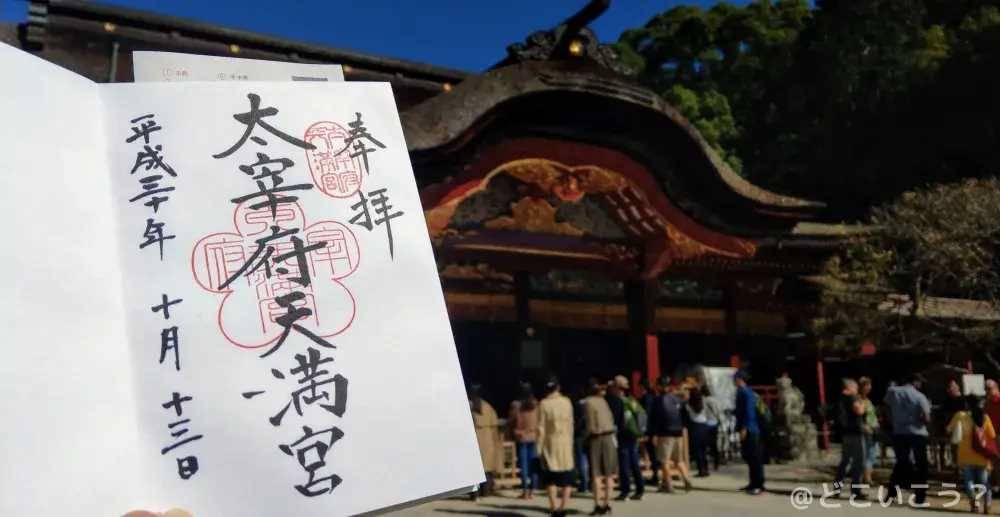 奉拝
太宰府天満宮
平成三十年 十月 十三日
@どこいこう?